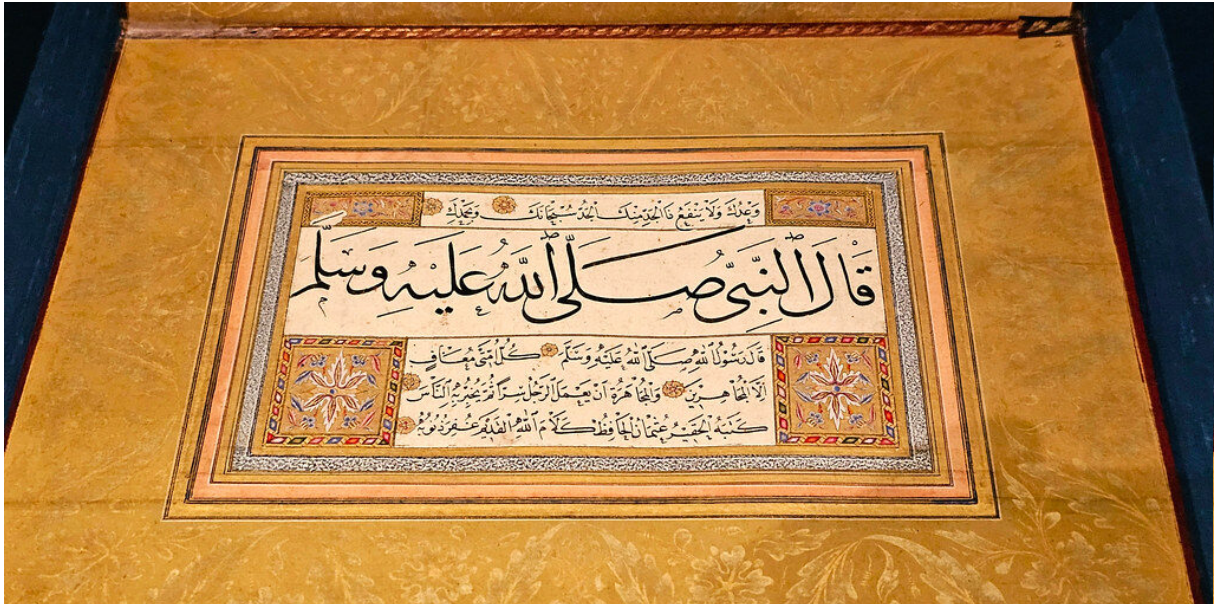 وَعْدُكَ وَلَا يَنْفَعُ ذَا الْجَدِّ مِنْكَ الْجَدُّ سُبْحَانَكَ وَبِحَمْدِكَ
قَالَ النَّبِيُّ صَلَّى اللّٰهُ عَلَيْهِ وَسَلَّمَ
قَالَ رَسُولُ اللّٰهِ صَلَّى اللّٰهُ عَلَيْهِ وَسَلَّمَ كُلُّ أُمَّتِي مُعَافًى
إِلَّا الْمُجَاهِرِينَ وَالْمُجَاهَرَةُ أَنْ يَعْمَلَ الرَّجُلُ سِرًّا ثُمَّ يُخْبِرُ بِهِ النَّاسَ
كَتَبَهُ الْحَقِيرُ عُثْمَانُ الْحَافِظُ كَلَامَ اللّٰهِ الْقَدِيمِ غُفِرَ ذُنُوبُهُ
2